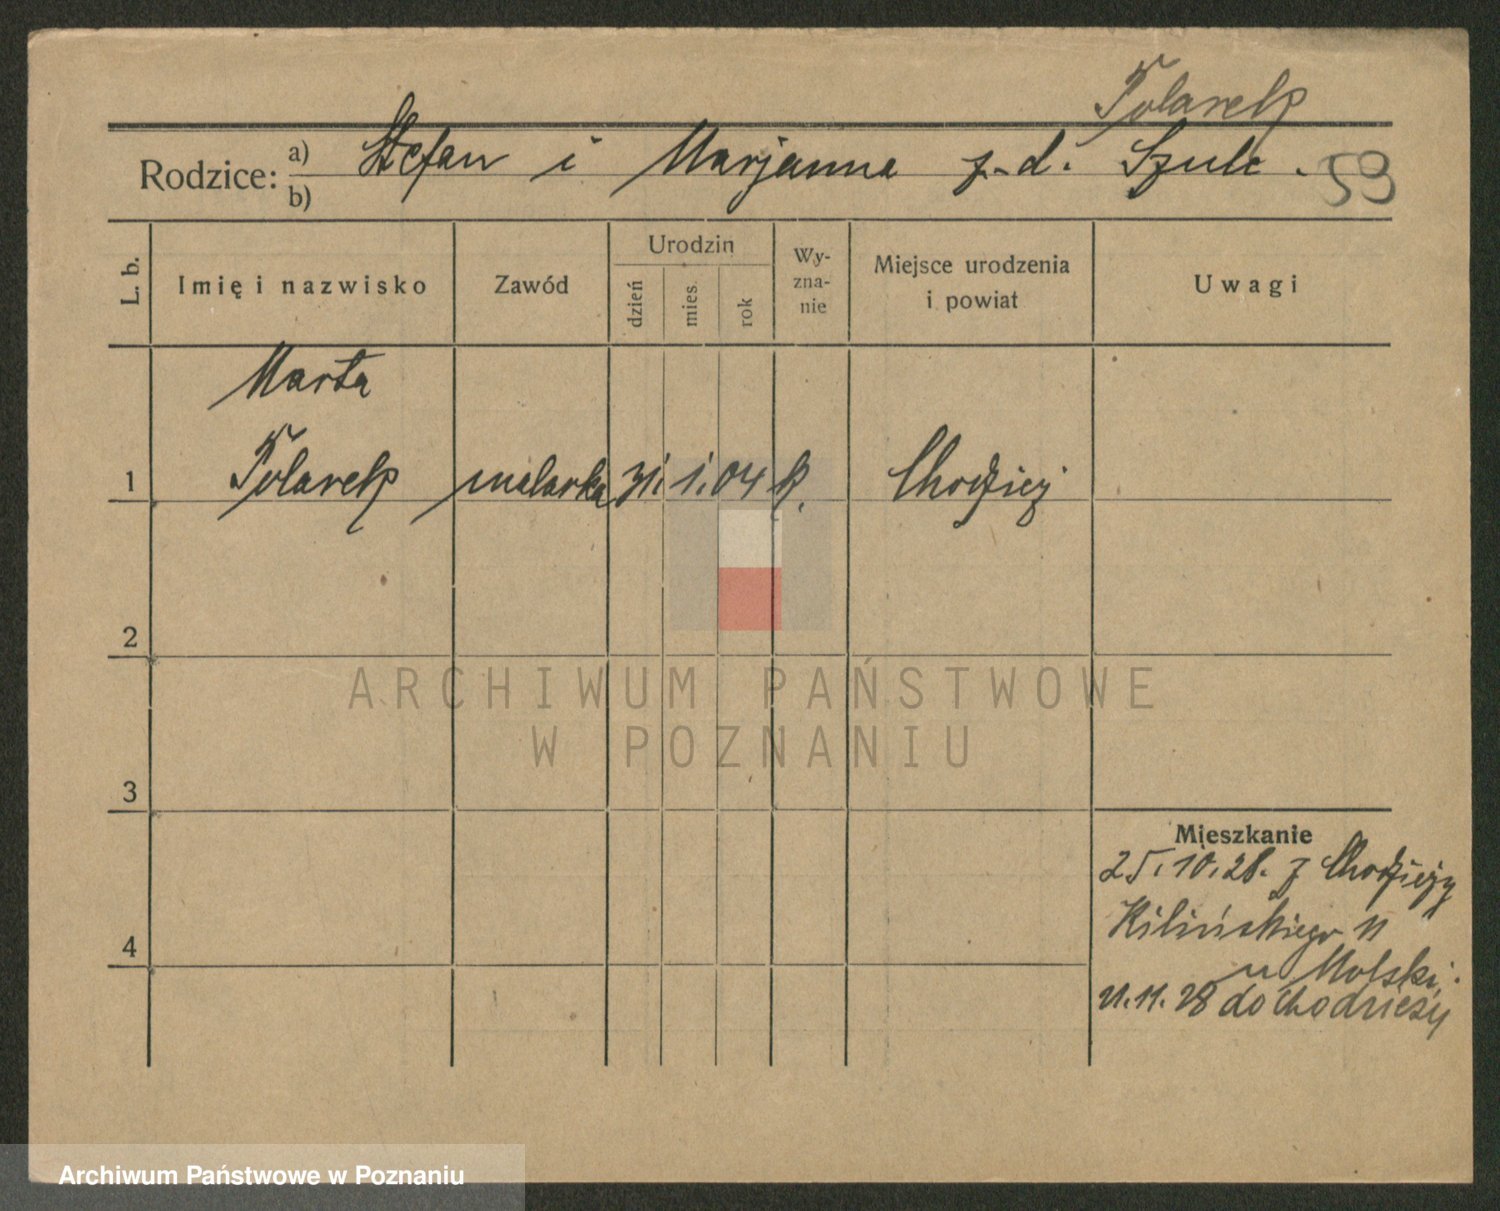 Tolarek
Rodzice: a) b) Stefan i Marjanna z-d. Szulc. 59
L. b. Imię i nazwisko Zawód Urodzin dzień mies. rok Wyznanie Miejsce urodzenia i powiat Uwagi
Marta
1 Tolarek malarka 31. 1. 04 k. Chodzież
2
ARCHIWUM PAŃSTWOWE
W POZNANIU
3
Mieszkanie
25.10.28. z Chodzieży
Kilińskiego 11
4
u Molski.
21.11.28 do Chodzieży
Archiwum Państwowe w Poznaniu